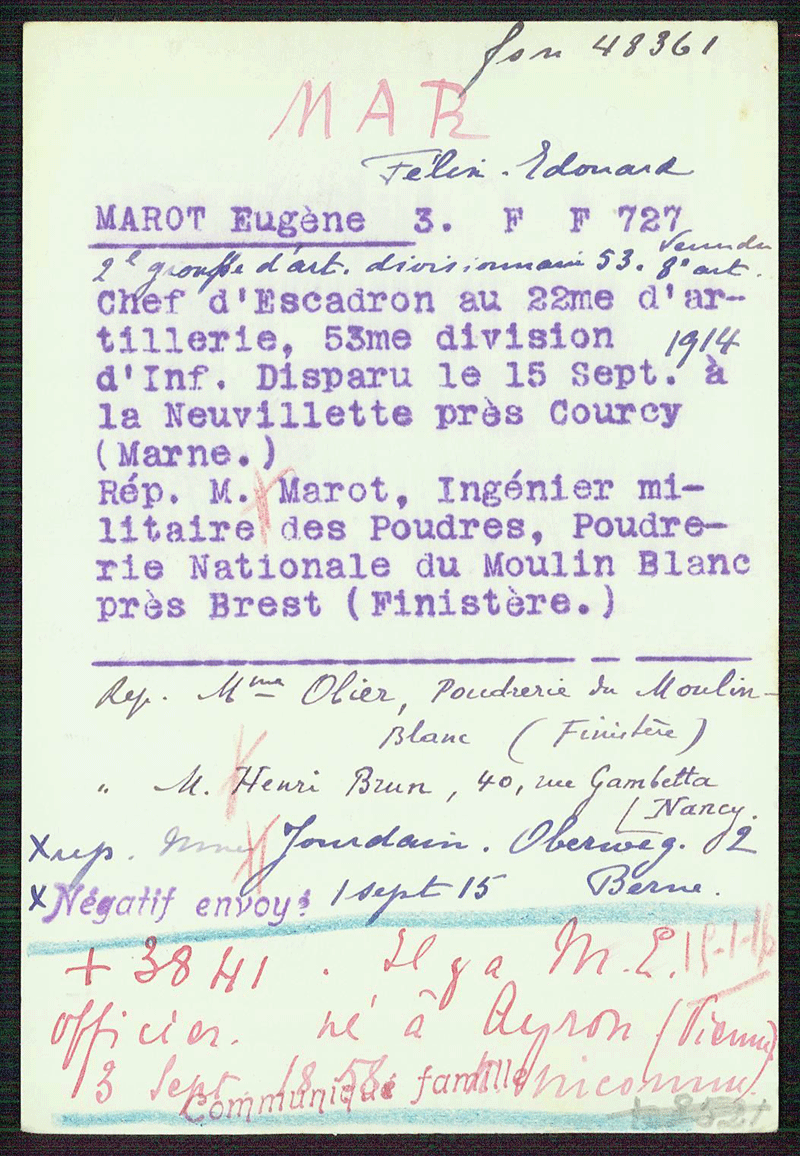 48361
MAR
Félix-Edouard
MAROT Eugène 3. F F 727
2e groupe d'art. divisionnaire 53. Venu du 8e art.
Chef d'Escadron au 22me d'ar-
tillerie, 53me division
d'Inf. Disparu le 15 Sept. 1914 à
la Neuvillette près Courcy
(Marne.)
Rép. M. Marot, Ingénier mi-
litaire des Poudres, Poudre-
rie Nationale du Moulin Blanc
près Brest (Finistère.)
Rep. Mme Olier, Poudrerie du Moulin-
Blanc (Finistère)
" M. Henri Brun, 40, rue Gambetta
Nancy.
X rep. Mme Jourdain. Oberweg. 2
Berne.
X Négatif envoyé 1 sept 15
+ 3841. Il y a M. E. 15-1-16
officier. né à Ayron (Vienne)
3 Sept 1858
Communiqué famille